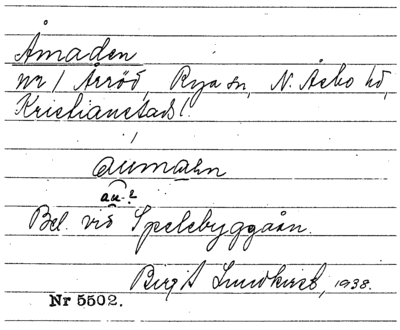 Åmaden
nr 1 Årröd, Rya sn, N. Åsbo hd,
Kristianstads l.
åumaðn
au-?
Bel. vid Spelebyggåån.
Birgit Lundkvist, 1938.
Nr 5502.